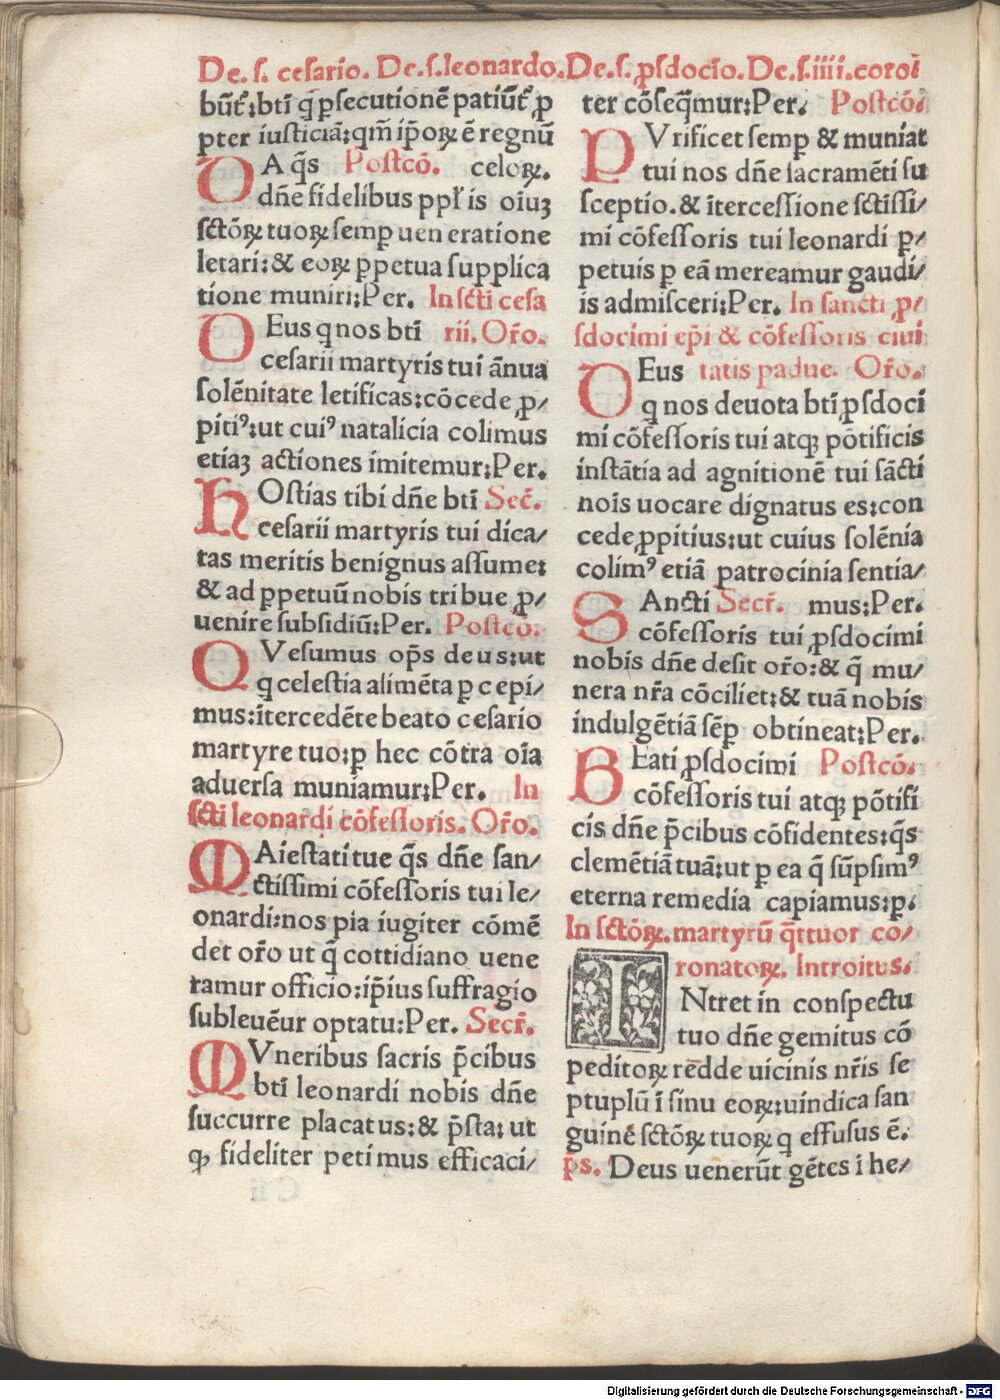 De. ſ. ceſario. De. ſ. leonardo. De. ſ. ꝓſdocīo. De. ſ. iiii. coroī
būt᷑: bt̄i q̄ ꝑſecutionē patiūt᷑ ꝓ
pter iuſticiā: qm̄ ip̄oꝝ ē regnū
DA q̄s Poſtcō. celoꝝ.
dn̄e fidelibus ppl̄is oīuꝫ
ſctōꝝ tuoꝝ ſemꝑ ueneratione
letari: & eoꝝ ꝑpetua ſupplica
tione muniri: Per. In ſcti ceſa
DEus q nos bt̄i rii. Or̄o.
ceſarii martyris tui ānua
ſolēnitate letificas: cōcede ꝓ/
pitiꝰ: ut cuiꝰ natalicia colimus
etiaꝫ actiones imitemur: Per.
HOſtias tibi dn̄e bt̄i Sec̄.
ceſarii martyris tui dica/
tas meritis benignus aſſume:
& ad ꝑpetuū nobis tribue ꝓ/
uenire ſubſidiū: Per. Poſtcō.
QVeſumus op̄s deus: ut
q celeſtia alimēta ꝑcepi/
mus: ītercedēte beato ceſario
martyre tuo: ꝑ hec cōtra oīa
aduerſa muniamur: Per. In
ſcti leonardi cōfeſſoris. Or̄o.
MAieſtati tue q̄s dn̄e ſan/
ctiſſimi cōfeſſoris tui le/
onardi: nos pia iugiter cōmē
det or̄o ut q̄ cottidiano uene
ramur officio: ip̄ius ſuffragio
ſubleuēur optatu: Per. Secr̄.
MVneribus ſacris p̄cibus
bt̄i leonardi nobis dn̄e
ſuccurre placatus: & p̄ſta: ut
ꝙ fideliter petimus efficaci/
C ii
ter cōſeq̄mur: Per. Poſtcō.
PVrificet ſemꝑ & muniat
tui nos dn̄e ſacramēti ſu
ſceptio. & īterceſſione ſctiſſi/
mi cōfeſſoris tui leonardi ꝑ/
petuis ꝑ eā mereamur gaudi/
is admiſceri: Per. In ſancti ꝓ/
ſdocimi ep̄i & cōfeſſoris ciui
DEus tatis padue. Or̄o.
q nos deuota bt̄i ꝓſdoci
mi cōfeſſoris tui atqꝫ pōtificis
inſtātia ad agnitionē tui ſācti
nois uocare dignatus es: con
cede ꝓpitius: ut cuius ſolēnia
colimꝰ etiā patrocinia ſentia/
SAncti Secr̄. mus: Per.
cōfeſſoris tui ꝓſdocimi
nobis dn̄e deſit or̄o: & q̄ mu/
nera nr̄a cōciliet: & tuā nobis
indulgētiā ſēꝑ obtineat: Per.
BEati ꝓſdocimi Poſtcō.
cōfeſſoris tui atqꝫ pōtifi
cis dn̄e p̄cibus cōfidentes: q̄s
clemētiā tuā: ut ꝑ ea q̄ ſūpſimꝰ
eterna remedia capiamus: p.
In ſctōꝝ. martyrū q̄ttuor co/
ronatoꝝ. Introitus.
INtret in conſpectu
tuo dn̄e gemitus cō
peditoꝝ redde uicinis nr̄is ſe
ptuplū ī ſinu eoꝝ: uindica ſan
guinē ſctōꝝ tuoꝝ q effuſus ē.
p̄s. Deus uenerūt gētes i he/
Digitalisierung gefördert durch die Deutsche Forschungsgemeinschaft - DFG